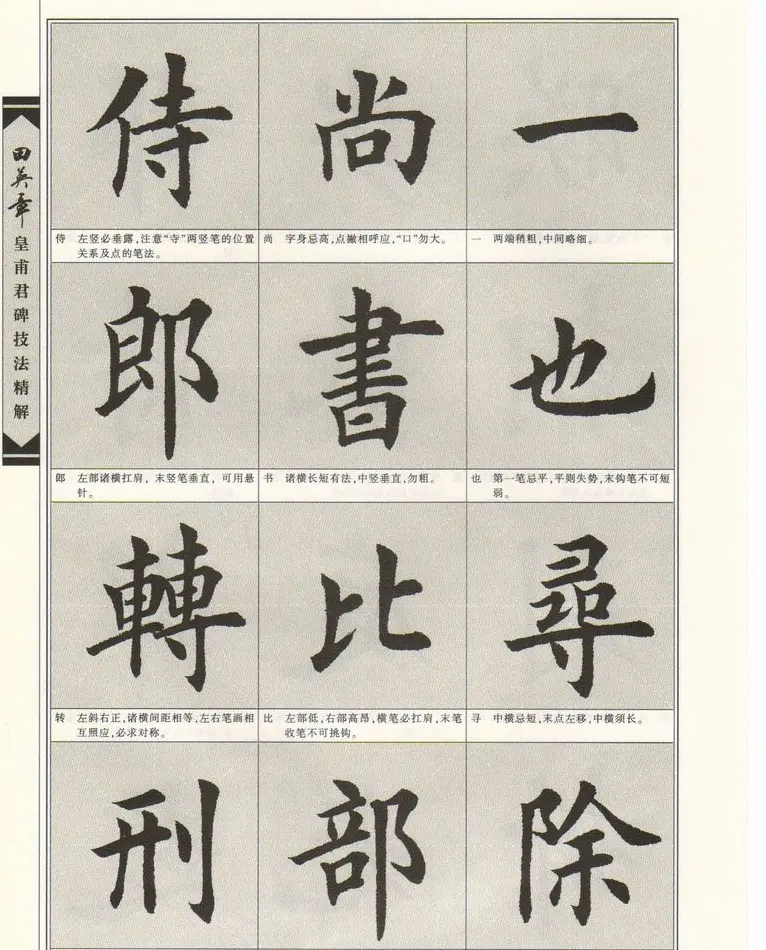 田英章
皇甫君碑技法精解
侍 尚 一
侍 左竖必垂露,注意“寺”两竖笔的位置
关系及点的笔法。
尚 字身忌高,点撇相呼应,“口”勿大。
一 两端稍粗,中间略细。
郎 書 也
郎 左部诸横扛肩,末竖笔垂直,可用悬
针。
书 诸横长短有法,中竖垂直,勿粗。
也 第一笔忌平,平则失势,末钩笔不可短
弱。
轉 比 尋
转 左斜右正,诸横间距相等,左右笔画相
互照应,必求对称。
比 左部低,右部高昂,横笔必扛肩,末笔
收笔不可挑钩。
寻 中横忌短,末点左移,中横须长。
刑 部 除